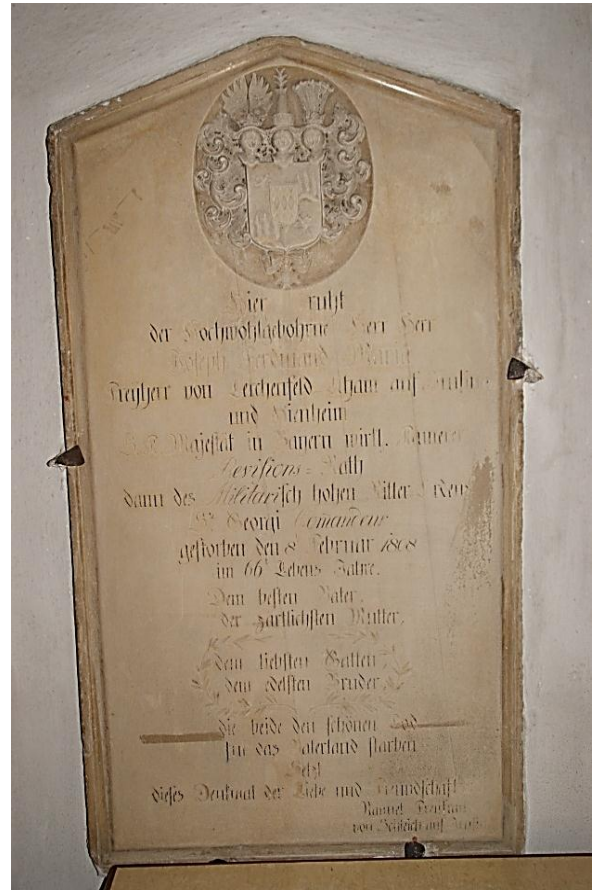 Hier ruht
der Hochwohlgebohrne Herr Herr
Joseph Ferdinand Maria
Freyherr von Lerchenfeld Aham auf
und
Majestät in Bayern wirkl. Kämerer
Revisions=Rath
dann des Militärisch hohen Ritter Ordens
St Georgi Comandeur
gestorben den 8 Februar 1808
im 66 Lebens Jahre.
Dem besten Vater,
der zärtlichsten Mutter,
dem liebsten Gatten,
dem edelsten Bruder,
die beide den schönen Tod
für das Vaterland starben
Setzt
dieses Denkmal der Liebe und Freundschaft
Freyfrau
von auf